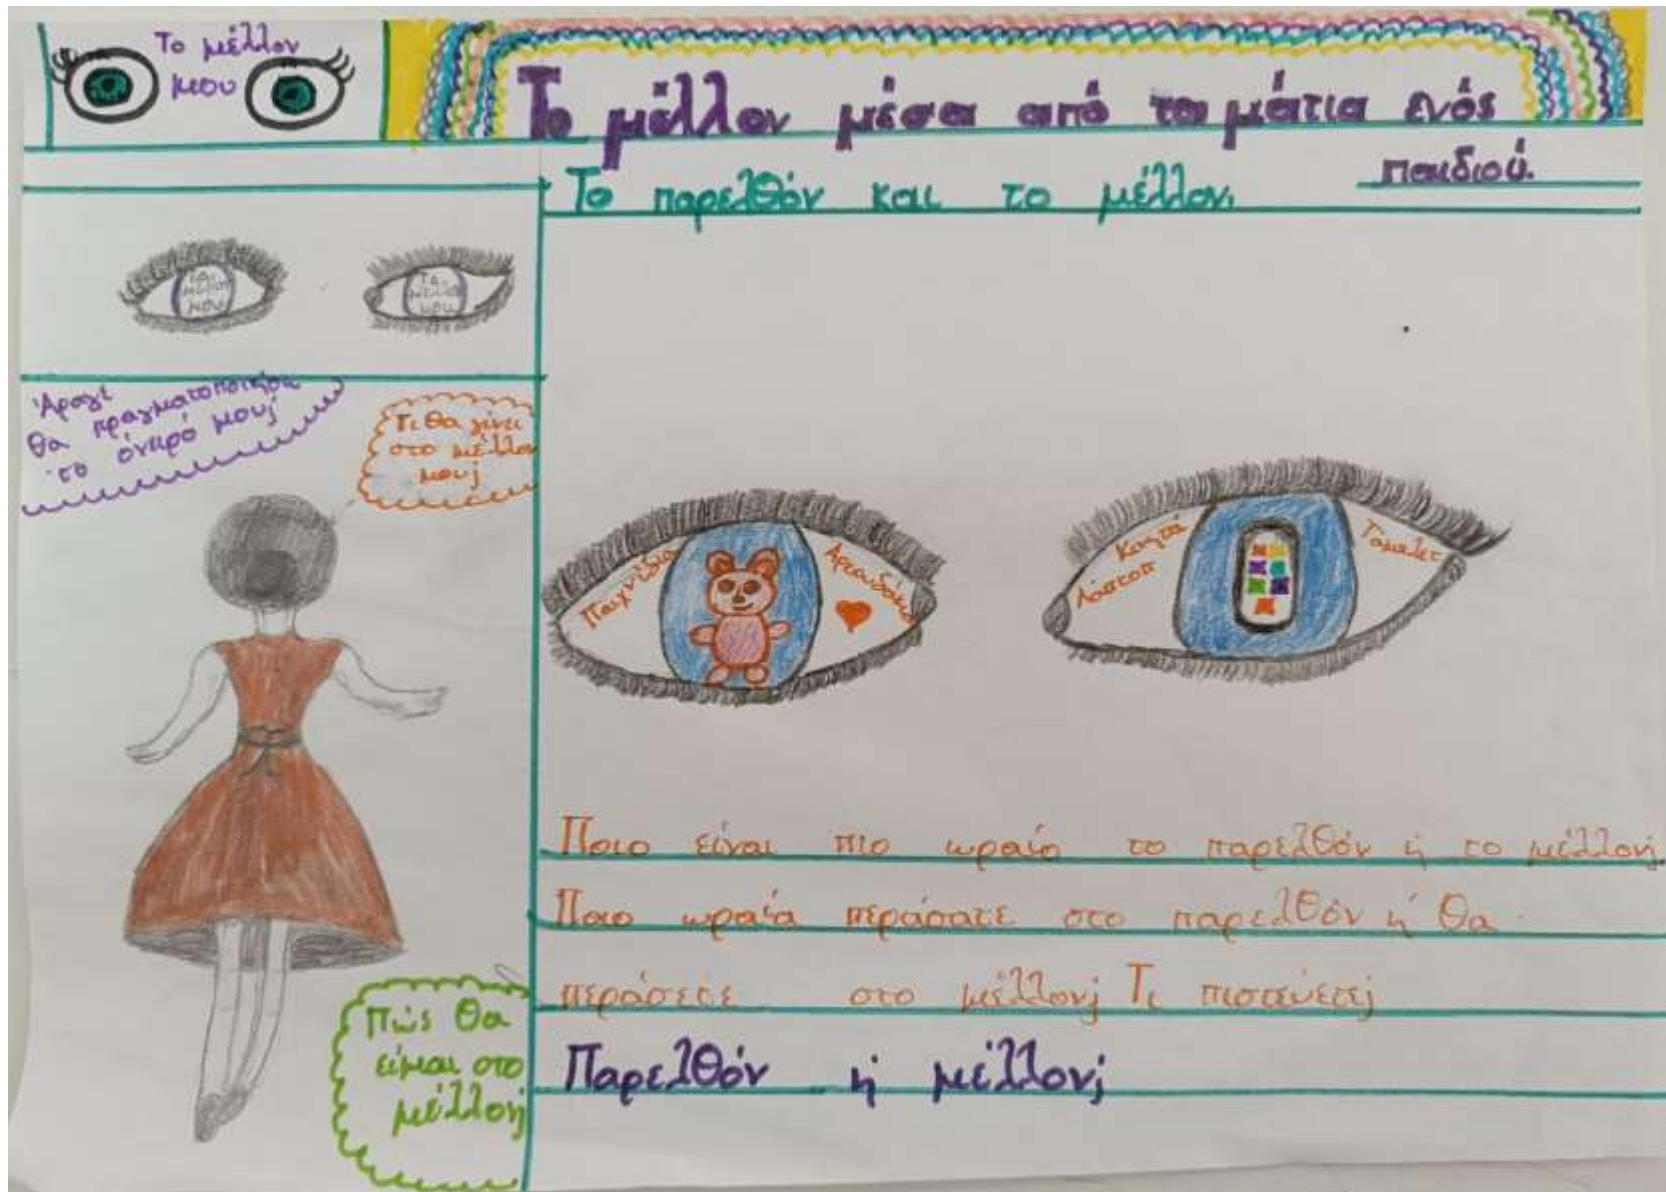 Το μέλλον
μου
Το μέλλον μέσα από τα μάτια ενός
παιδιού.
Το παρελθόν και το μέλλον.
Το
μέλλον
μου
Το
μέλλον
μου
Άραγε
θα πραγματοποιήσω
το όνειρό μου;
Τι θα γίνει
στο μέλλον
μου;
Παιχνίδια
Αρκουδάκια
Κινητά
Λάπτοπ
Τάμπλετ
Ποιο είναι πιο ωραίο το παρελθόν ή το μέλλον;
Ποιο ωραία περάσατε στο παρελθόν ή θα
περάσετε στο μέλλον; Τι πιστεύετε;
Παρελθόν ή μέλλον;
Πώς θα
είμαι στο
μέλλον;